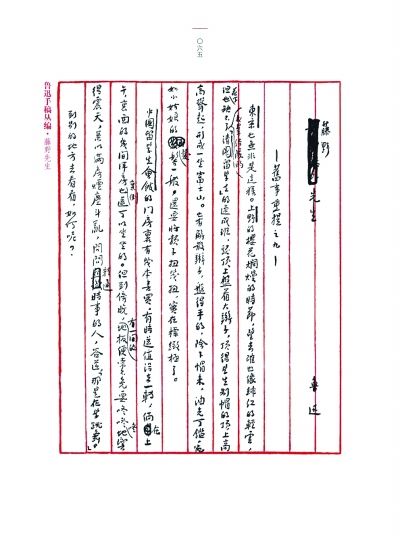 〇六五
鲁迅手稿丛编·藤野先生
魯迅
藤野先生
—舊事重提之九—
東京也無非是這樣。上野的櫻花爛熳的時節，望去確也像緋紅的輕雲，
但花下也缺不了成羣結隊的「清國留學生」的速成班，頭頂上盤着大辮子，頂得學生制帽的頂上高
高聳起，形成一座富士山。也有解散辮子，盤得平的，除下帽來，油光可鑑，宛
如小姑娘的髮髻一般，還要將脖子扭幾扭，實在標緻極了。
中國留學生會館的門房裏有幾本書買，有時還值得去一轉，倘在上
午，裏面的幾間洋房裏倒也還可以坐坐的。但到傍晚，有一間的地板便常不免要咚咚地響
得震天，兼以滿房煙塵斗亂，問問精通時事的人，答道，「那是在學跳舞。」
到別的地方去看看，如何呢？